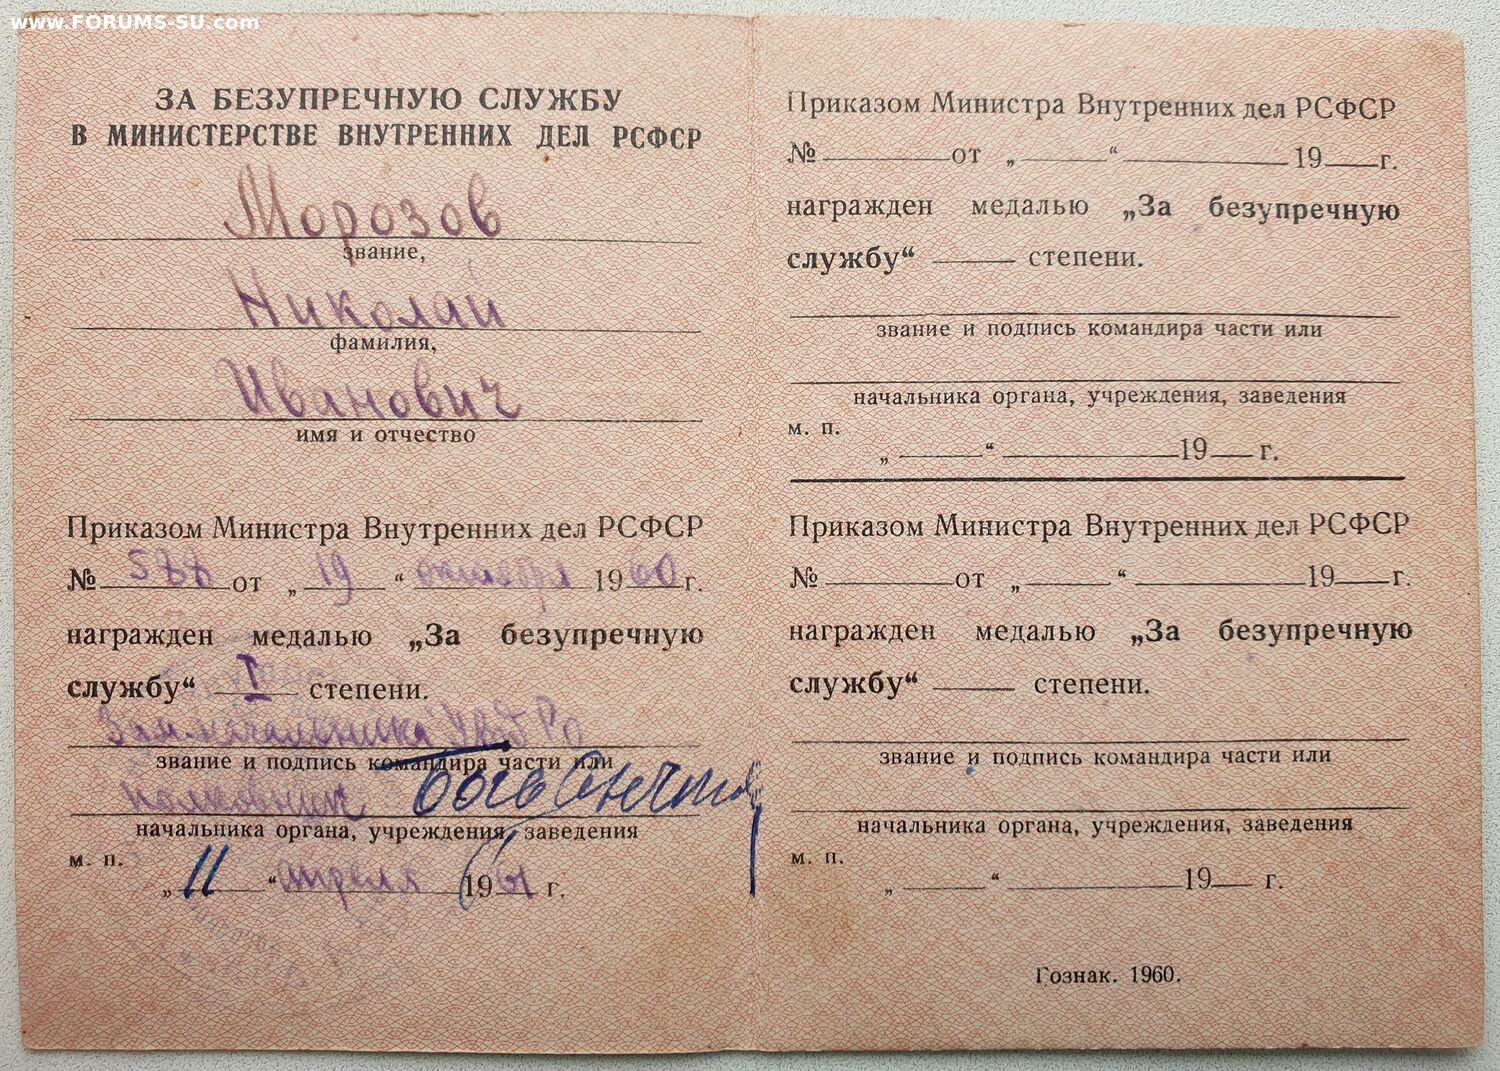 www.FORUMS-SU.com
ЗА БЕЗУПРЕЧНУЮ СЛУЖБУ
В МИНИСТЕРСТВЕ ВНУТРЕННИХ ДЕЛ РСФСР
Морозов
звание,
Николай
фамилия,
Иванович
имя и отчество
Приказом Министра Внутренних дел РСФСР
№ 588 от „ 19 “ октября 1960 г.
награжден медалью „За безупречную
службу“ I степени.
Зам. начальника УВД РО
звание и подпись командира части или
полковник
начальника органа, учреждения, заведения
м. п.
„ 11 “ апреля 1961 г.
Приказом Министра Внутренних дел РСФСР
№ от „ “ 19 г.
награжден медалью „За безупречную
службу“ степени.
звание и подпись командира части или
начальника органа, учреждения, заведения
м. п.
„ “ 19 г.
Приказом Министра Внутренних дел РСФСР
№ от „ “ 19 г.
награжден медалью „За безупречную
службу“ степени.
звание и подпись командира части или
начальника органа, учреждения, заведения
м. п.
„ “ 19 г.
Гознак. 1960.